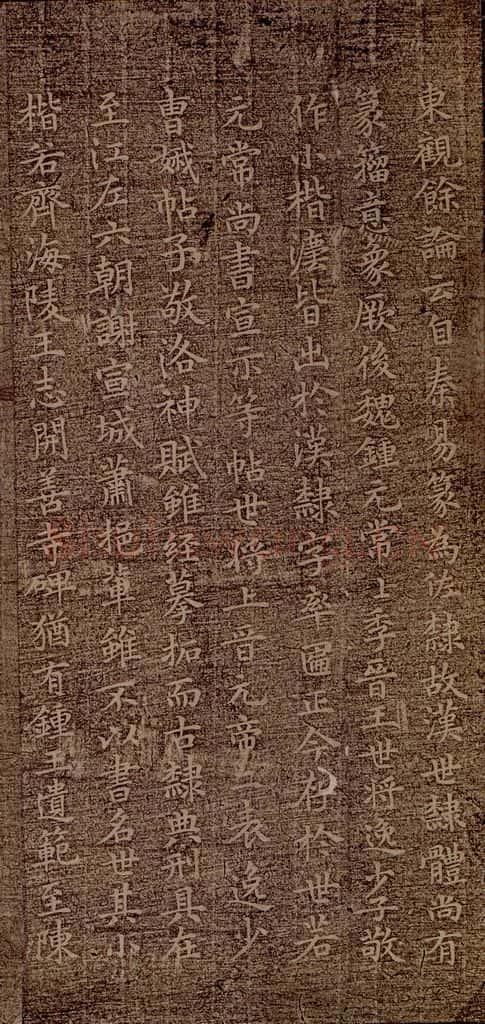 東觀餘論云自秦易篆為佐隸故漢世隸體尚有
篆籀意象厥後魏鍾元常士季晉王世將逸少子敬
作小楷灋皆出於漢隸字率匾正今存於世若
元常尚書宣示等帖世將上晉元帝二表逸少
曹娥帖子敬洛神賦雖經摹拓而古隸典刑具在
至江左六朝謝宣城蕭挹軰雖不以書名世其小
楷若齊海陵王志開善寺碑猶有鍾王遺範至陳